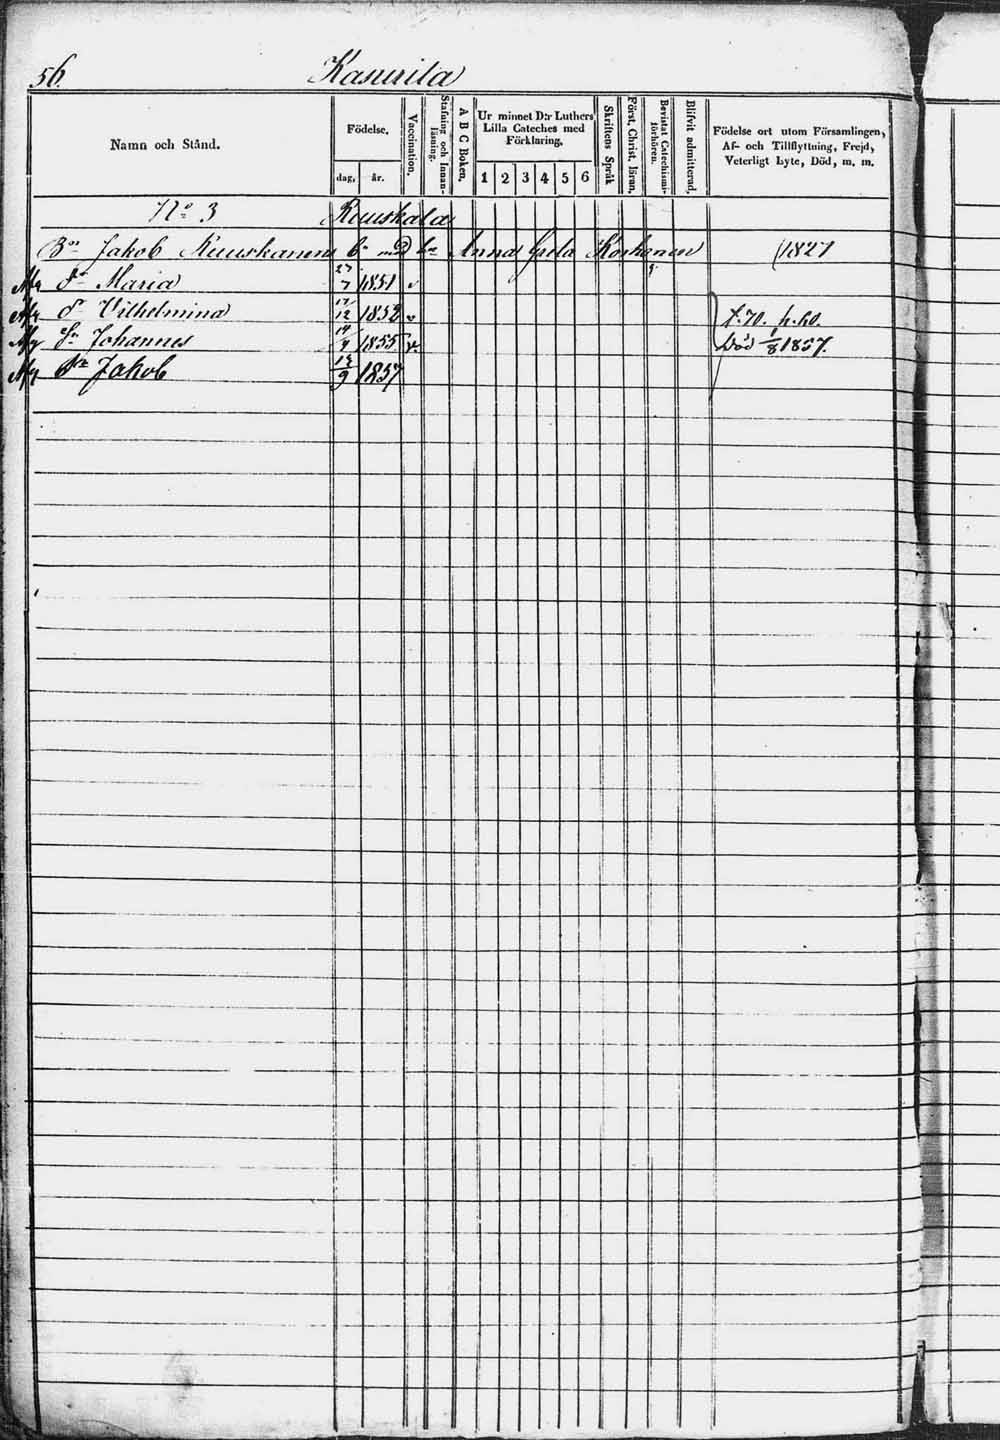 56.
Kasurila
Namn och Stånd.
Födelse.
dag.
år.
Vaccination.
Stafning och Innan-
läsning.
A B C Boken.
Ur minnet D:r Luthers
Lilla Cateches med
Förklaring.
1 2 3 4 5 6
Skriftens Språk
Först. Christ. läran.
Bevistat Catechismi-
förhören.
Blifvit admitterad.
Födelse ort utom Församlingen,
Af- och Tillflyttning, Frejd,
Veterligt Lyte, Död, m. m.
N:o 3 Ruuskala
Bn Jakob Ruuskanen med Anna Greta Korhonen 1827
Dr Maria 27/7 1851 v
Dr Vilhelmina 17/12 1852 v
Sn Johannes 14/4 1855 v. Död 1/8 1857.
Sn Jakob 13/9 1857